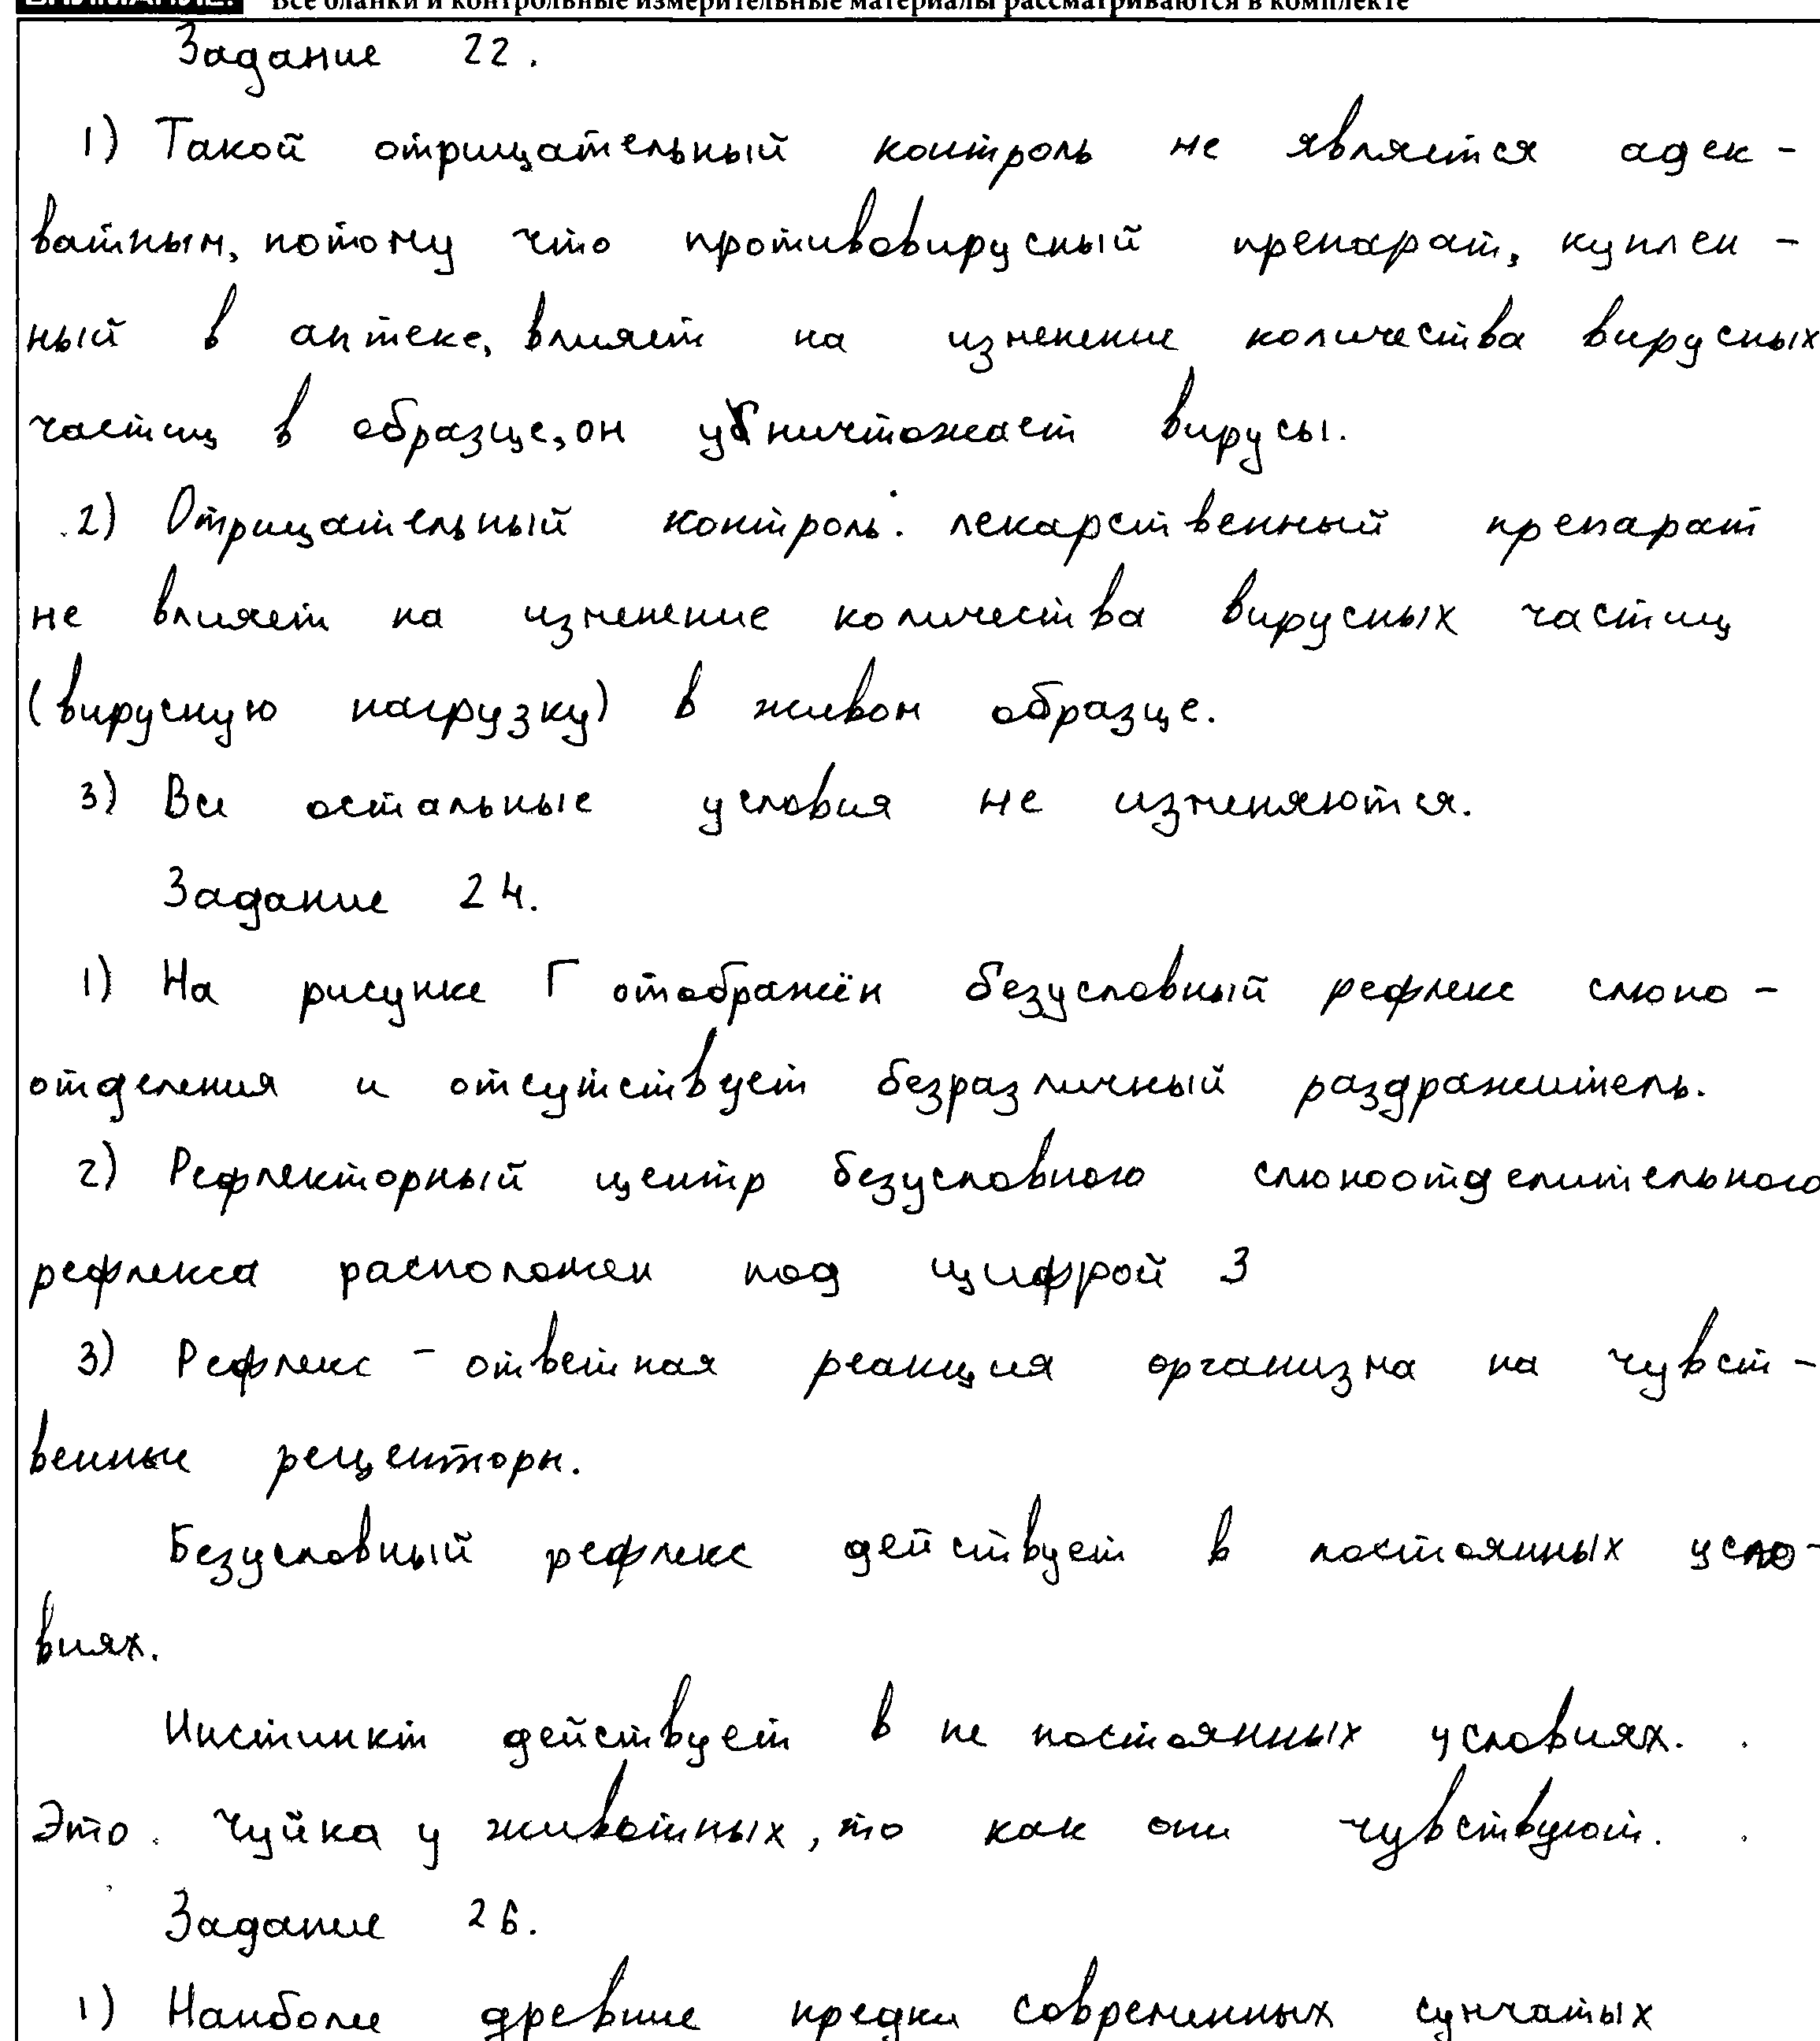 ВНИМАНИЕ! Все бланки и контрольные измерительные материалы рассматриваются в комплекте
Задание 22.
1) Такой отрицательный контроль не является адек-
ватным, потому что противовирусный препарат, куплен-
ный в аптеке, влияет на изменение количества вирусных
частиц в образце, он уничтожает вирусы.
2) Отрицательный контроль: лекарственный препарат
не влияет на изменение количества вирусных частиц
(вирусную нагрузку) в живом образце.
3) Все остальные условия не изменяются.
Задание 24.
1) На рисунке Г отображён безусловный рефлекс слюно-
отделения и отсутствует безразличный раздражитель.
2) Рефлекторный центр безусловного слюноотделительного
рефлекса расположен под цифрой 3
3) Рефлекс - ответная реакция организма на чувст-
венные рецепторы.
Безусловный рефлекс действует в постоянных усло-
виях.
Инстинкт действует в не постоянных условиях.
Это чуйка у животных, то как они чувствуют.
Задание 26.
1) Наиболее древние предки современных сумчатых